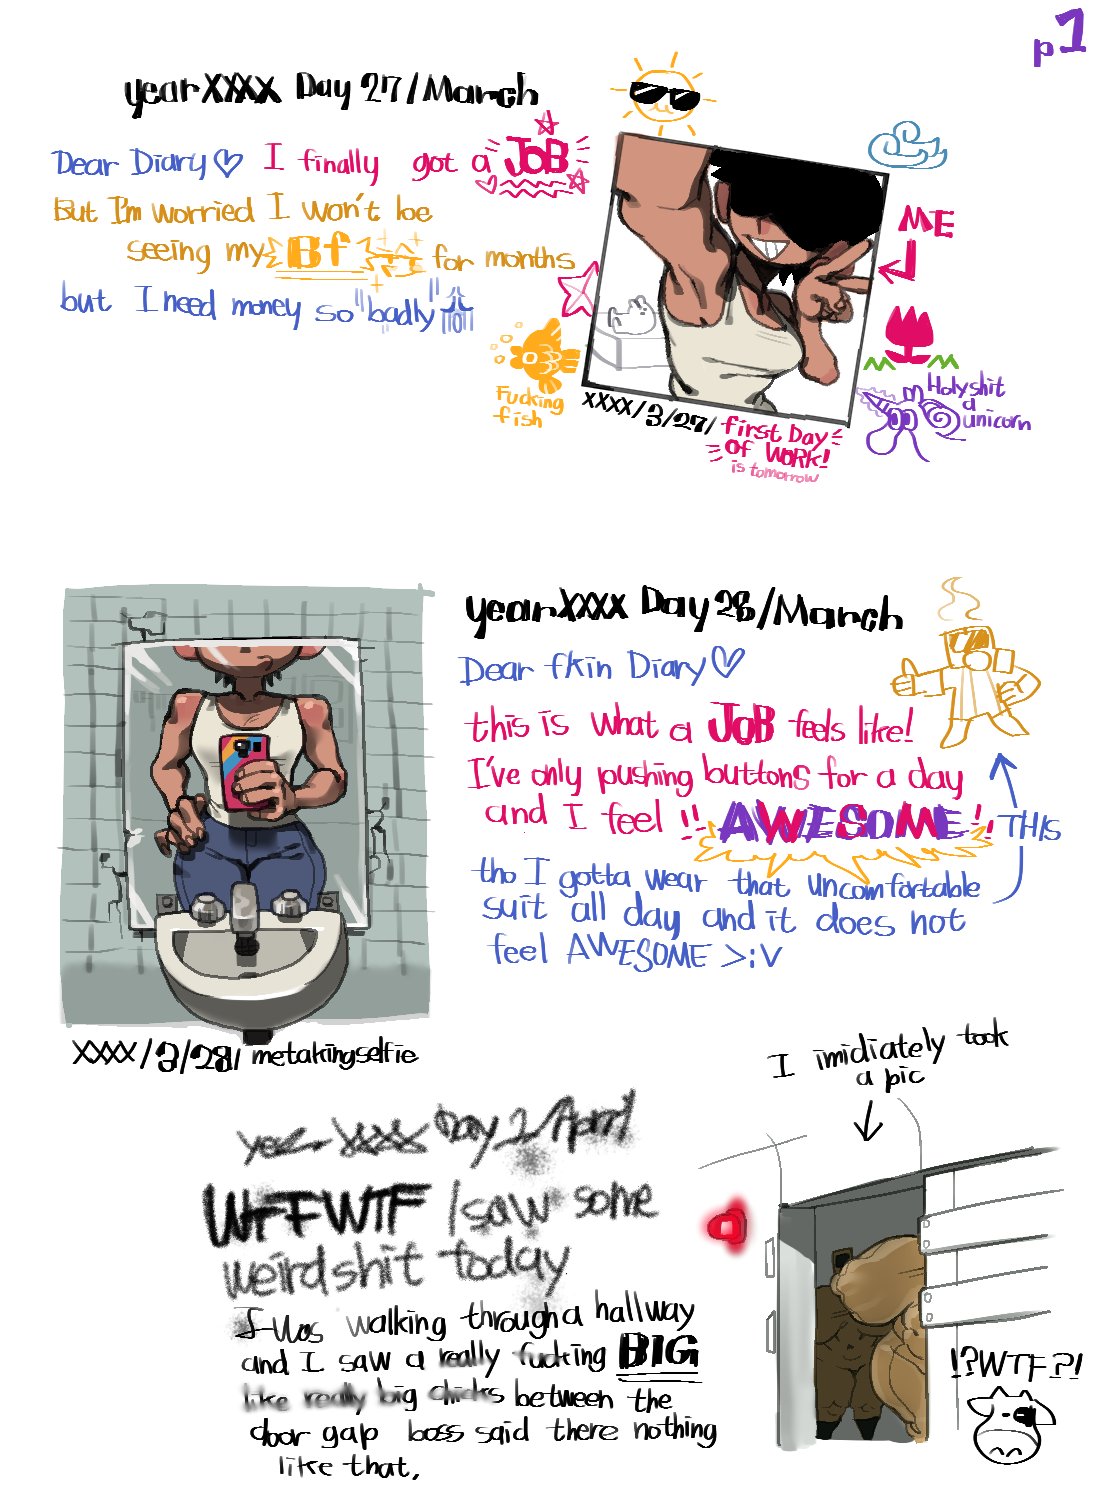 p1
year XXXX Day 27/March
Dear Diary♡ I finally got a JOB
But I'm worried I won't be
seeing my Bf for months
but I need money so "badly"
ME
Fucking
fish
Holyshit
a
unicorn
XXXX/3/27/ first Day
OF WORK!
is tomorrow
year XXXX Day 28/March
Dear fkin Diary♡
this is what a JOB feels like!
I've only pushing buttons for a day
and I feel !! AWESOME!!
THIS
tho I gotta wear that uncomfortable
suit all day and it does not
feel AWESOME >:V
XXXX/3/28/ metakingselfie
I imidiately took
a pic
year XXXX Day 2/April
WTFFWTF I saw some
weird shit today
I was walking through a hallway
and I saw a really fucking BIG
like really big chicks between the
door gap boss said there nothing
like that,
!?WTF?!